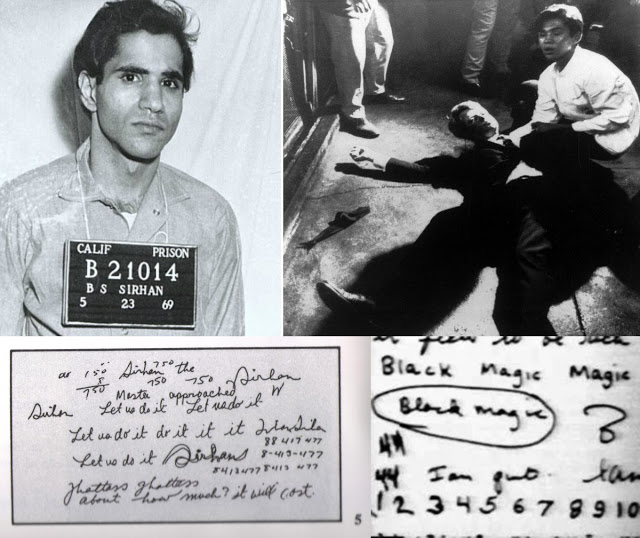 CALIF PRISON
B 21014
B S SIRHAN
5 23 69
150 Sirhan 750 the Sirhan
750 750 750
Master approached
Let us do it Let us do it
Let us do it do it it it
88 417 477
Let us do it Sirhans 8-413-477
8413477 8413 477
about how much? it will cost.
5
to be such
Black Magic Magic
Black magic
44
44 I am
1 2 3 4 5 6 7 8 9 10